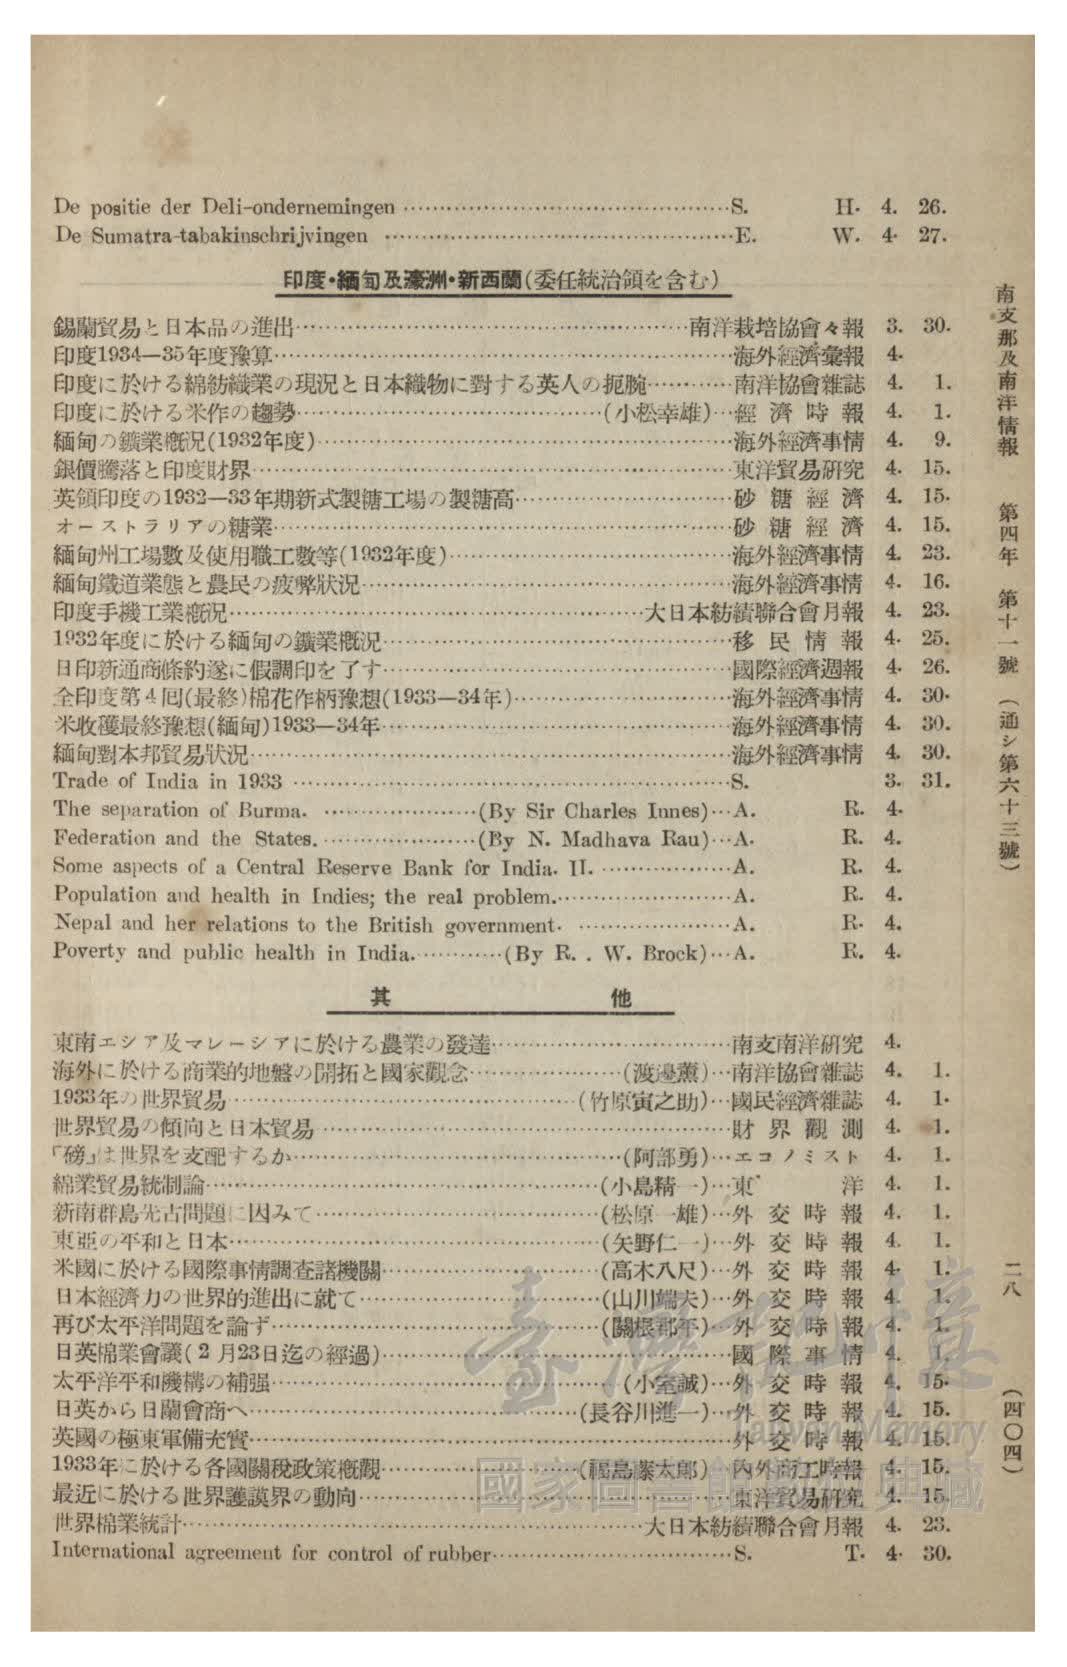 De positie der Deli-ondernemingen ……………………………………S. H. 4. 26.
De Sumatra-tabakinschrijvingen ……………………………………E. W. 4. 27.
印度・緬甸及濠洲・新西蘭(委任統治領を含む)
錫蘭貿易と日本品の進出……………………………………南洋栽培協會々報 3. 30.
印度1934—35年度豫算……………………………………海外經濟彙報 4.
印度に於ける綿紡織業の現況と日本織物に對する英人の扼腕…………南洋協會雜誌 4. 1.
印度に於ける米作の趨勢……………………………(小松幸雄)…經濟時報 4. 1.
緬甸の鑛業概況(1932年度)……………………………………海外經濟事情 4. 9.
銀價騰落と印度財界……………………………………東洋貿易研究 4. 15.
英領印度の1932—33年期新式製糖工場の製糖高……………………砂糖經濟 4. 15.
オーストラリアの糖業……………………………………砂糖經濟 4. 15.
緬甸州工場數及使用職工數等(1932年度)…………………………海外經濟事情 4. 23.
緬甸鐵道業態と農民の疲弊狀況……………………………………海外經濟事情 4. 16.
印度手機工業概況……………………………………大日本紡績聯合會月報 4. 23.
1932年度に於ける緬甸の鑛業概況……………………………………移民情報 4. 25.
日印新通商條約遂に假調印を了す……………………………………國際經濟週報 4. 26.
全印度第4回(最終)棉花作柄豫想(1933—34年)……………………海外經濟事情 4. 30.
米收穫最終豫想(緬甸)1933—34年……………………………………海外經濟事情 4. 30.
緬甸對本邦貿易狀況……………………………………海外經濟事情 4. 30.
Trade of India in 1933 ……………………………………S. 3. 31.
The separation of Burma. …………………(By Sir Charles Innes)…A. R. 4.
Federation and the States. …………………(By N. Madhava Rau)…A. R. 4.
Some aspects of a Central Reserve Bank for India. II. ………………A. R. 4.
Population and health in Indies; the real problem.……………………A. R. 4.
Nepal and her relations to the British government. …………………A. R. 4.
Poverty and public health in India.…………(By R. . W. Brock)…A. R. 4.
其他
東南エシア及マレーシアに於ける農業の發達……………………南支南洋研究 4.
海外に於ける商業的地盤の開拓と國家觀念……………(渡邊薫)…南洋協會雜誌 4. 1.
1933年の世界貿易……………………………(竹原寅之助)…國民經濟雜誌 4. 1.
世界貿易の傾向と日本貿易……………………………………財界觀測 4. 1.
「磅」は世界を支配するか……………………………(阿部勇)…エコノミスト 4. 1.
綿業貿易統制論……………………………………(小島精一)…東洋 4. 1.
新南群島先占問題に因みて……………………………(松原一雄)…外交時報 4. 1.
東亞の平和と日本……………………………………(矢野仁一)…外交時報 4. 1.
米國に於ける國際事情調査諸機關……………………(高木八尺)…外交時報 4. 1.
日本經濟力の世界的進出に就て……………………(山川端夫)…外交時報 4. 1.
再び太平洋問題を論ず……………………………(關根郡平)…外交時報 4. 1.
日英棉業會議(2月23日迄の經過)……………………………………國際事情 4. 1.
太平洋平和機構の補强……………………………(小室誠)…外交時報 4. 15.
日英から日蘭會商へ……………………………(長谷川進一)…外交時報 4. 15.
英國の極東軍備充實……………………………………外交時報 4. 15.
1933年に於ける各國關稅政策概觀………………(福島藤太郎) 内外商工時報 4. 15.
最近に於ける世界護謨界の動向……………………………………東洋貿易研究 4. 15.
世界棉業統計……………………………………大日本紡績聯合會月報 4. 23.
International agreement for control of rubber……………………S. T. 4. 30.
南支那及南洋情報 第四年 第十一號 (通シ第六十三號)
二八
(四〇四)
臺灣記憶
Taiwan Memory
國家圖書館 典藏